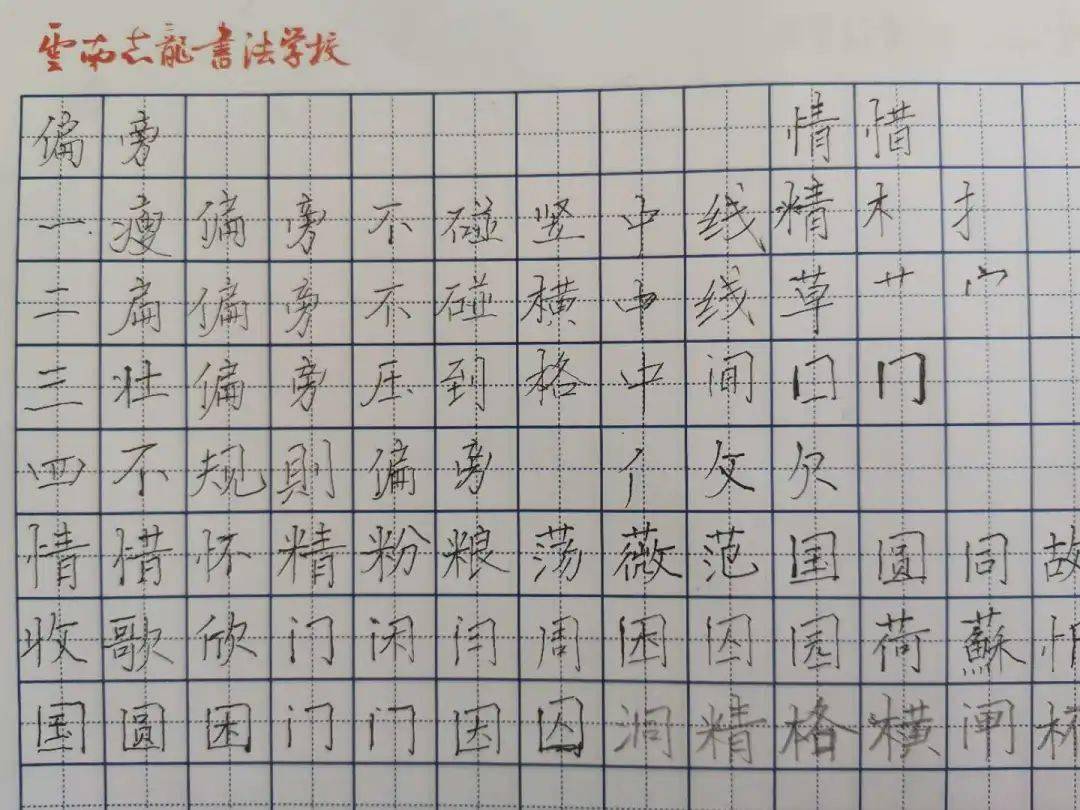 雲南志龍书法学校
偏旁 情惜
一.瘦偏旁不碰竖中线精木扌
二扁偏旁不碰横中线草艹宀
三壮偏旁压到格中间囗门
四不规則偏旁 亻攵欠
情惜怀精粉粮荡薇范国圆同故
收歌欣门闲闰周困因園荷蘇
国圆困门门因囚洞精格横闸